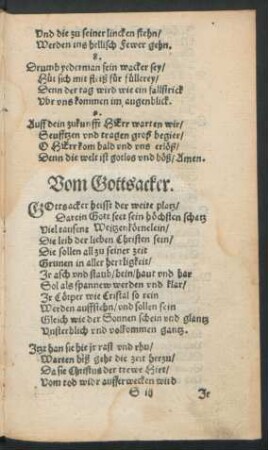 Vnd die zu seiner lincken stehn/
Werden ins hellisch Fewer gehn.
8.
Drumb yederman sein wacker sey/
Hüt sich mit fleiß für füllerey/
Denn der tag wird wie ein fallstrick
Vbr vns kommen im augenblick.
9.
Auff dein zukunfft HErr warten wir/
Seufftzen vnd tragen groß begier/
O HErr kom bald vnd vns erlöß/
Denn die welt ist gotlos vnd böß/ Amen.
Vom Gottsacker.
GOttsacker heisst der weite platz/
Darein Gott seet sein höchsten schatz
Viel tausent Weitzenkörnelein/
Die leib der lieben Christen sein/
Die sollen all zu seiner zeit
Grunen in aller herrligkeit/
Ir asch vnd staub/ bein/ haut vnd har
Sol als spannew werden vnd klar/
Ir Cörper wie Cristal so rein
Werden auffstehn/ vnd sollen sein
Gleich wie der Sonnen schein vnd glantz
Vnsterblich vnd volkommen gantz.
Itzt han sie hie jr rast vnd rhu/
Warten biß gehe die zeit herzu/
Da sie Christus der trewe Hirt/
Vom tod widr aufferwecken wird
S iij Je